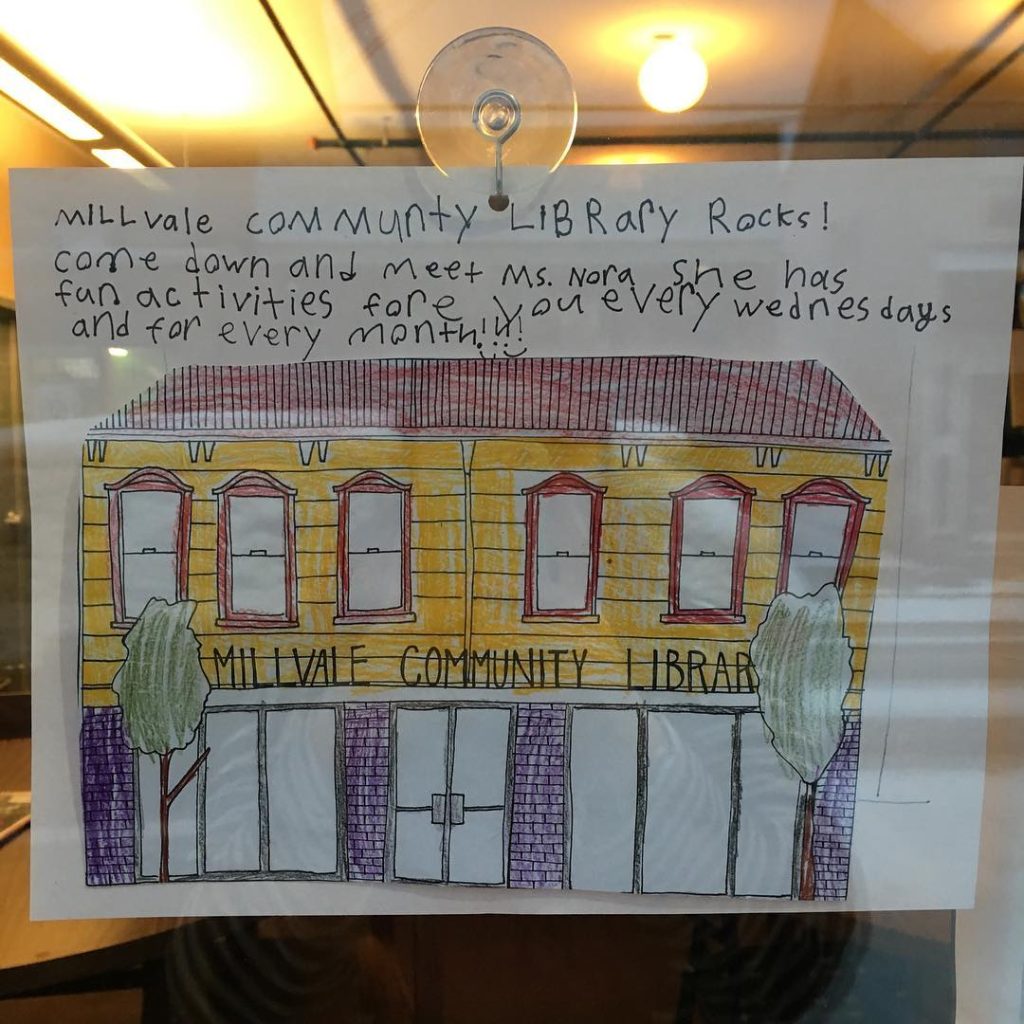 MILLvale communty LIBRary Rocks!
come down and meet Ms. Nora She has
fun activities fore you every wednesdays
and for every month!!!!
MILLVALE COMMUNITY LIBRAR